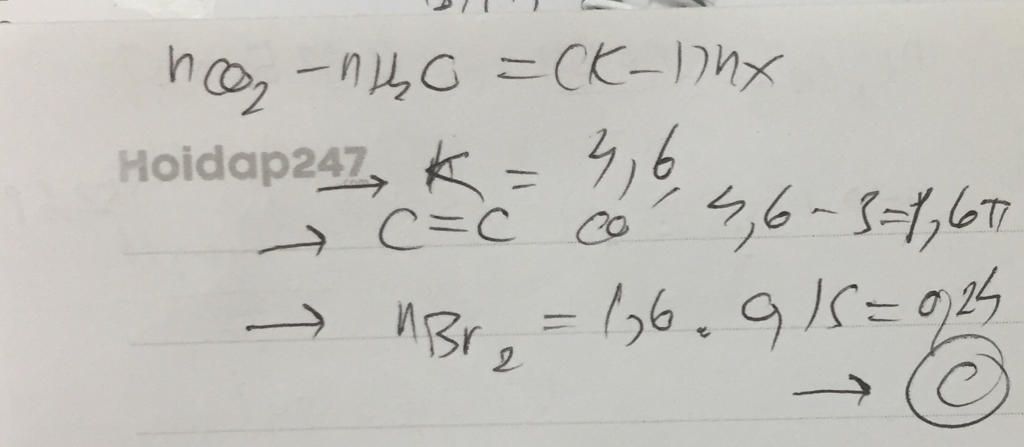 nCO₂ - nH₂O = (K-1)nX
Hoidap247
.com
→ K = 4,6
→ C=C có 4,6 - 3 = 1,6π
→ nBr₂ = 1,6 . 0,15 = 0,24
→ C